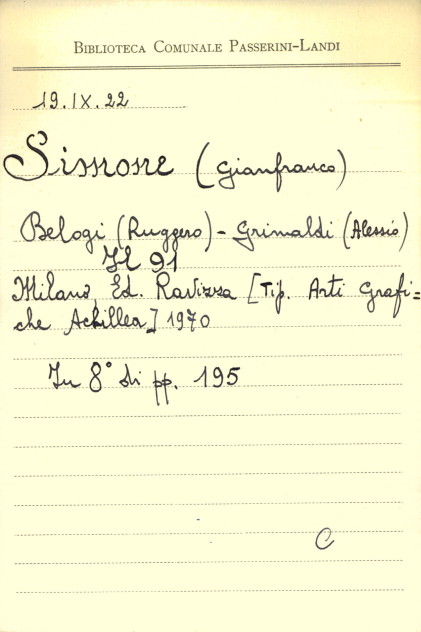 BIBLIOTECA COMUNALE PASSERINI-LANDI
19.IX.22
Simone (Gianfranco)
Belogi (Ruggero) - Grimaldi (Alessio)
Il 91
Milano, Ed. Ravizza [Tip. Arti Grafi=
che Achillea] 1970
In 8° di pp. 195
C